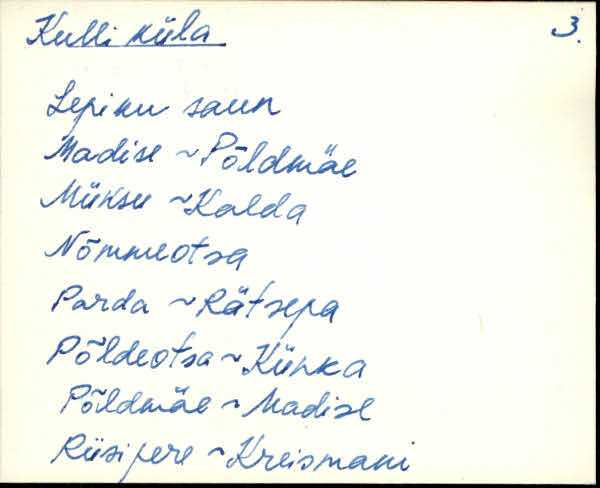 Kulli küla 3.
Lepiku saun
Madise ~ Põldmäe
Müksu ~ Kalda
Nõmmeotsa
Parda ~ Rätsepa
Põldeotsa ~ Künka
Põldmäe ~ Madise
Riisipere ~ Kreismani